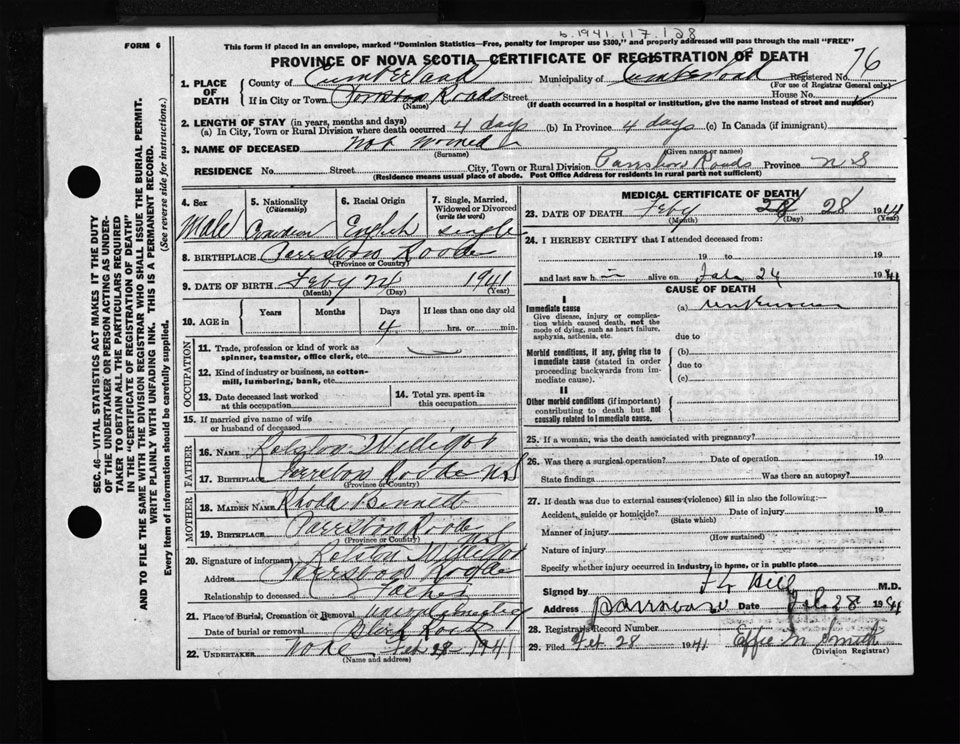 6.1941.117.128
FORM 6
This form if placed in an envelope, marked "Dominion Statistics—Free, penalty for improper use $300," and properly addressed will pass through the mail "FREE"
PROVINCE OF NOVA SCOTIA—CERTIFICATE OF REGISTRATION OF DEATH
SEC. 46—VITAL STATISTICS ACT MAKES IT THE DUTY
OF THE UNDERTAKER OR PERSON ACTING AS UNDER-
TAKER TO OBTAIN ALL THE PARTICULARS REQUIRED
IN THE "CERTIFICATE OF REGISTRATION OF DEATH"
AND TO FILE THE SAME WITH THE DIVISION REGISTRAR WHO SHALL ISSUE THE BURIAL PERMIT.
WRITE PLAINLY WITH UNFADING INK. THIS IS A PERMANENT RECORD.
Every item of information should be carefully supplied. (See reverse side for instructions.)
1. PLACE OF DEATH
County of Cumberland Municipality of Cumberland Registered No. 76
(For use of Registrar General only)
If in City or Town Roads Street House No.
(Name) (If death occurred in a hospital or institution, give the name instead of street and number)
2. LENGTH OF STAY (in years, months and days)
(a) In City, Town or Rural Division where death occurred 4 days (b) In Province 4 days (c) In Canada (if immigrant)
3. NAME OF DECEASED Not
(Surname) (Given name or names)
RESIDENCE No. Street City, Town or Rural Division Roads Province N S
(Residence means usual place of abode. Post Office Address for residents in rural parts not sufficient)
4. Sex Male
5. Nationality (Citizenship) Canadian
6. Racial Origin English
7. Single, Married, Widowed or Divorced (write the word) single
8. BIRTHPLACE
(Province or Country)
9. DATE OF BIRTH Feby 1941
(Month) (Day) (Year)
10. AGE in Years Months Days 4 If less than one day old hrs. or min.
OCCUPATION
11. Trade, profession or kind of work as spinner, teamster, office clerk, etc.
12. Kind of industry or business, as cotton-mill, lumbering, bank, etc.
13. Date deceased last worked at this occupation
14. Total yrs. spent in this occupation
15. If married give name of wife or husband of deceased
FATHER
16. Name
17. Birthplace N S
(Province or Country)
MOTHER
18. Maiden Name Rhoda Bennett
19. Birthplace
(Province or Country)
20. Signature of informant
Address
Relationship to deceased Father
21. Place of Burial, Cremation or Removal
Date of burial or removal Black Rock
22. UNDERTAKER None Feb 1941
(Name and address)
MEDICAL CERTIFICATE OF DEATH
23. DATE OF DEATH Feby 28 1941
(Month) (Day) (Year)
24. I HEREBY CERTIFY that I attended deceased from:
19 to 19
and last saw h alive on 24 1941
CAUSE OF DEATH
I
Immediate cause
Give disease, injury or complication which caused death, not the mode of dying, such as heart failure, asphyxia, asthenia, etc.
(a) unknown
due to
Morbid conditions, if any, giving rise to immediate cause (stated in order proceeding backwards from immediate cause).
(b)
due to
(c)
II
Other morbid conditions (if important) contributing to death but not causally related to immediate cause.
25. If a woman, was the death associated with pregnancy?
26. Was there a surgical operation? Date of operation 19
State findings Was there an autopsy?
27. If death was due to external causes (violence) fill in also the following:—
Accident, suicide or homicide? Date of injury 19
(State which)
Manner of injury
(How sustained)
Nature of injury
Specify whether injury occurred in industry, in home, or in public place
Signed by F L Hill M.D.
Address Parrsboro Date Feb 28 1941
28. Registrar's Record Number
29. Filed Feb 28 1941 Effie M Smith
(Division Registrar)